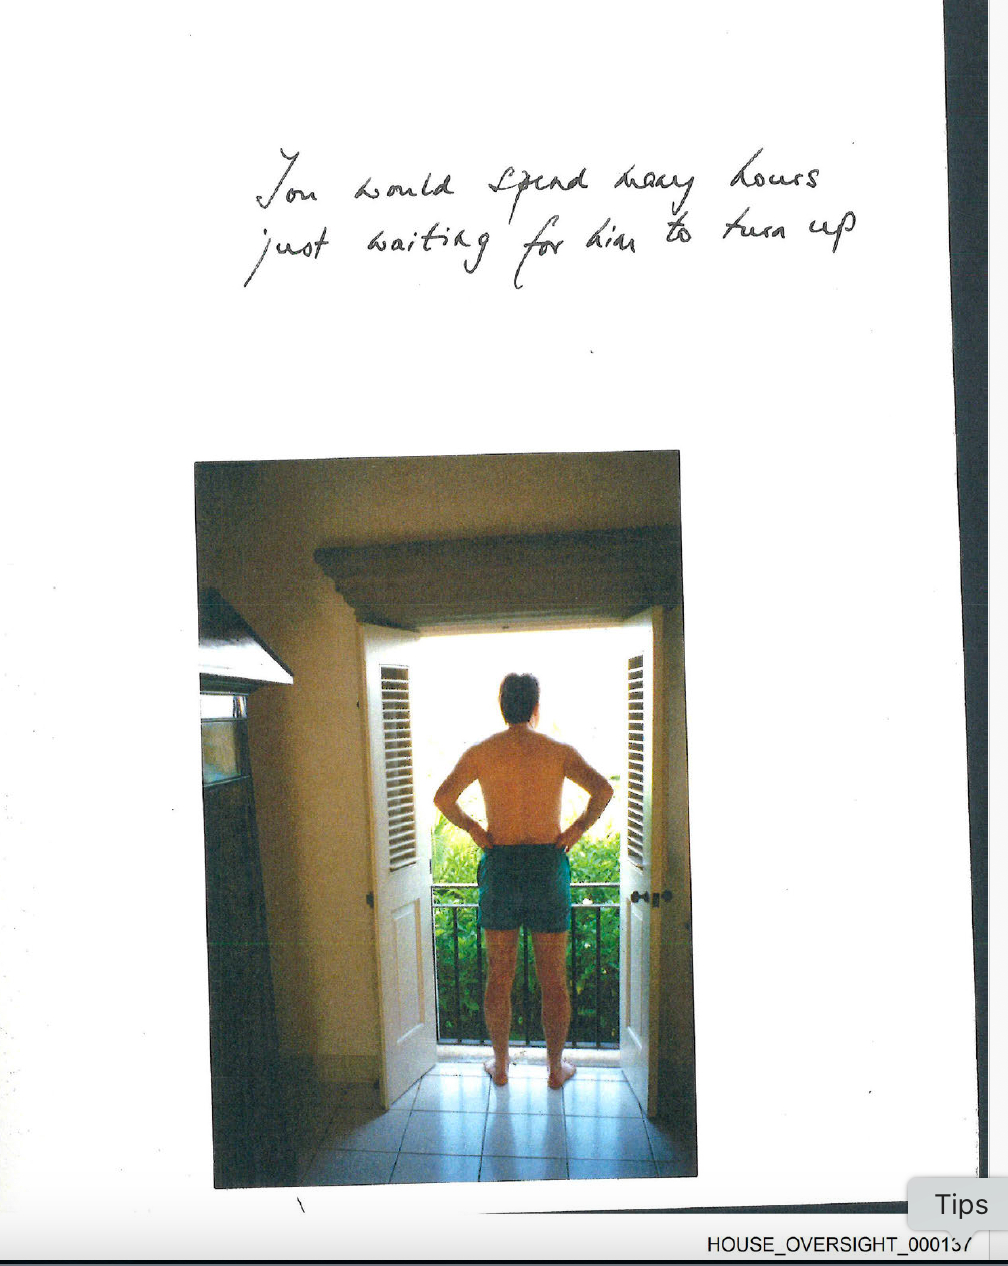 You would spend many hours
just waiting for him to turn up
Tips
HOUSE_OVERSIGHT_000137